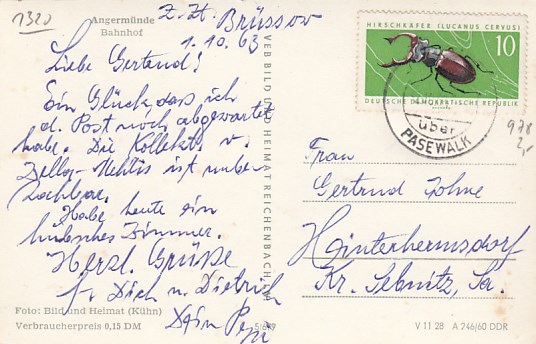 1320
Angermünde
Bahnhof
z. Zt. Brüssow
1.10.63
Liebe Gertrud!
Ein Glück, dass ich
d. Post noch abgewartet
habe. Die Kollekte v.
Zella-Mehlis ist
Habe heute ein
hübsches Zimmer.
Herzl. Grüße
f. Dich u. Dietrich
Dein
Foto: Bild und Heimat (Kühn)
Verbraucherpreis 0,15 DM
VEB BILD UND HEIMAT REICHENBACH
HIRSCHKÄFER (LUCANUS CERVUS)
10
DEUTSCHE DEMOKRATISCHE REPUBLIK
über
PASEWALK
978
2,-
Frau
Gertrud
Hinterhermsdorf
Kr. Sebnitz, Sa.
V 11 28 A 246/60 DDR